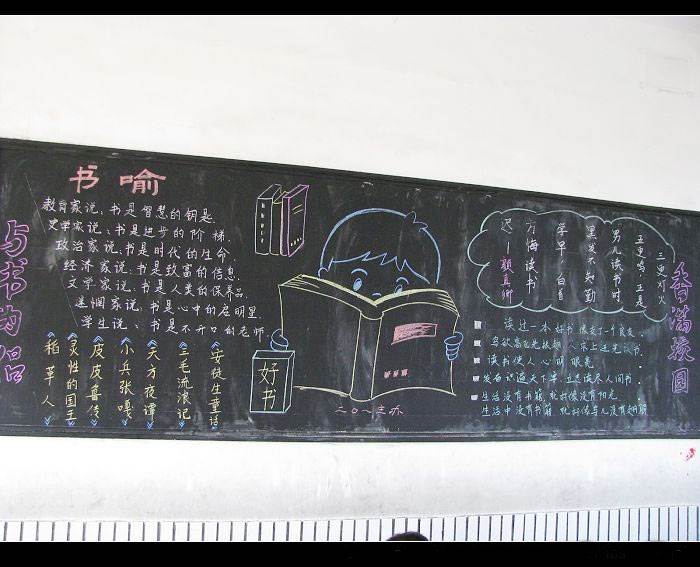 与书为侣
书喻
教育家说:书是智慧的钥匙.
史学家说:书是进步的阶梯.
政治家说:书是时代的生命
经济家说:书是致富的信息
文学家说:书是人类的保养品.
迷惘家说:书是心中的启明星.
学生说:书是不开口的老师
安徒生童话
三毛流浪记
天方夜谭
小兵张嘎
皮皮鲁传
灵性的国王
稻草人
好书
二〇八主办
三更灯火
五更鸡正是
男儿读书时
黑发不知勤
学早白首
方悔读书
迟!颜真卿
读过一本好书,像交了一个良友.
鸟欲高飞先振翅,人求上进先读书.
读书使人心明眼亮.
发奋识遍天下字,立志读尽人间书.
生活没有书籍,就好像没有阳光
香满校园